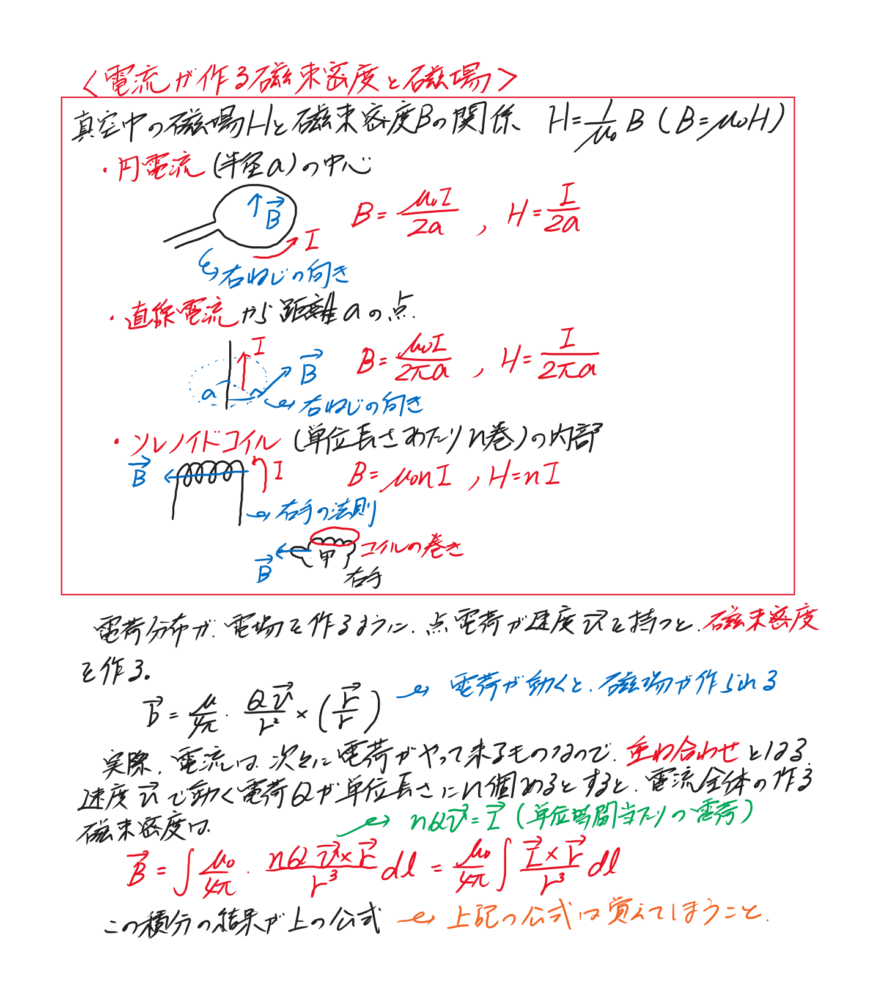 <電流が作る磁束密度と磁場>
真空中の磁場Hと磁束密度Bの関係、 H=1/μ₀ B (B=μ₀H)
・円電流(半径a)の中心
B⃗
I
B=μ₀I/2a , H=I/2a
右ねじの向き
・直線電流から距離aの点.
I
a
B⃗
B=μ₀I/2πa , H=I/2πa
右ねじの向き
・ソレノイドコイル(単位長さあたりn巻)の内部
B⃗
I
B=μ₀nI , H=nI
右手の法則
コイルの巻き
B⃗
甲
右手
電荷分布が、電場を作るように、点電荷が速度v⃗を持つと、磁束密度
を作る。
B⃗=μ/4π・Qv⃗/r²×(r⃗/r) 電荷が動くと、磁場が作られる
実際、電流は、次々に電荷がやって来るものなので、重ね合わせとなる
速度v⃗で動く電荷Qが単位長さにn個あるとすると、電流全体の作る
磁束密度は、 nQv⃗=I⃗(単位時間当たりの電荷)
B⃗=∫μ₀/4π・nQv⃗×r⃗/r³ dl=μ₀/4π∫I⃗×r⃗/r³ dl
この積分の結果が上の公式 上記の公式は覚えてしまうこと.